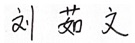 刘茹文